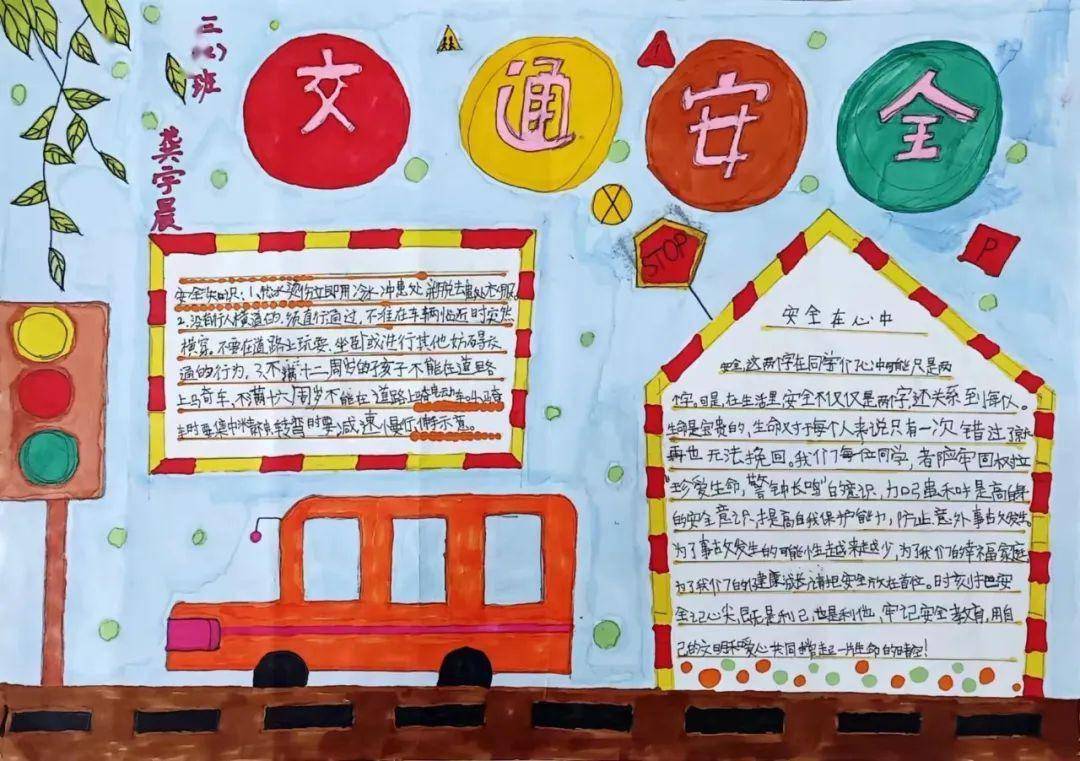 三(七)班
龚宇晨
交通安全
STOP
P
安全知识:1、热水烫伤立即用冷水冲患处,并脱去患处衣服。
2.没有行人横道的,须直行通过,不准在车辆临近时突然
横穿。不要在道路上玩耍、坐卧或进行其他妨碍交
通的行为,3、不满十二周岁的孩子不能在道路
上骑车,不满十六周岁不能在道路上骑电动车。骑
车时要集中精神,转弯时要减速慢行,伸手示意。
安全在心中
安全,这两个字在同学们心中可能只是两
个字。可是,在生活里安全不仅仅是两字,还关系到你我。
生命是宝贵的,生命对于每个人来说只有一次,错过了就
再也无法挽回。我们每位同学,都应牢固树立
"珍爱生命,警钟长鸣"的意识,加强和提高自身
的安全意识,提高自我保护能力,防止意外事故发生。
为了事故发生的可能性越来越少,为了我们的幸福家庭,
为了我们的健康成长,请把安全放在首位。时刻把安
全记心尖,既是利己,也是利他,牢记安全教育,用自
己的文明和爱心共同撑起一片生命的晴空!